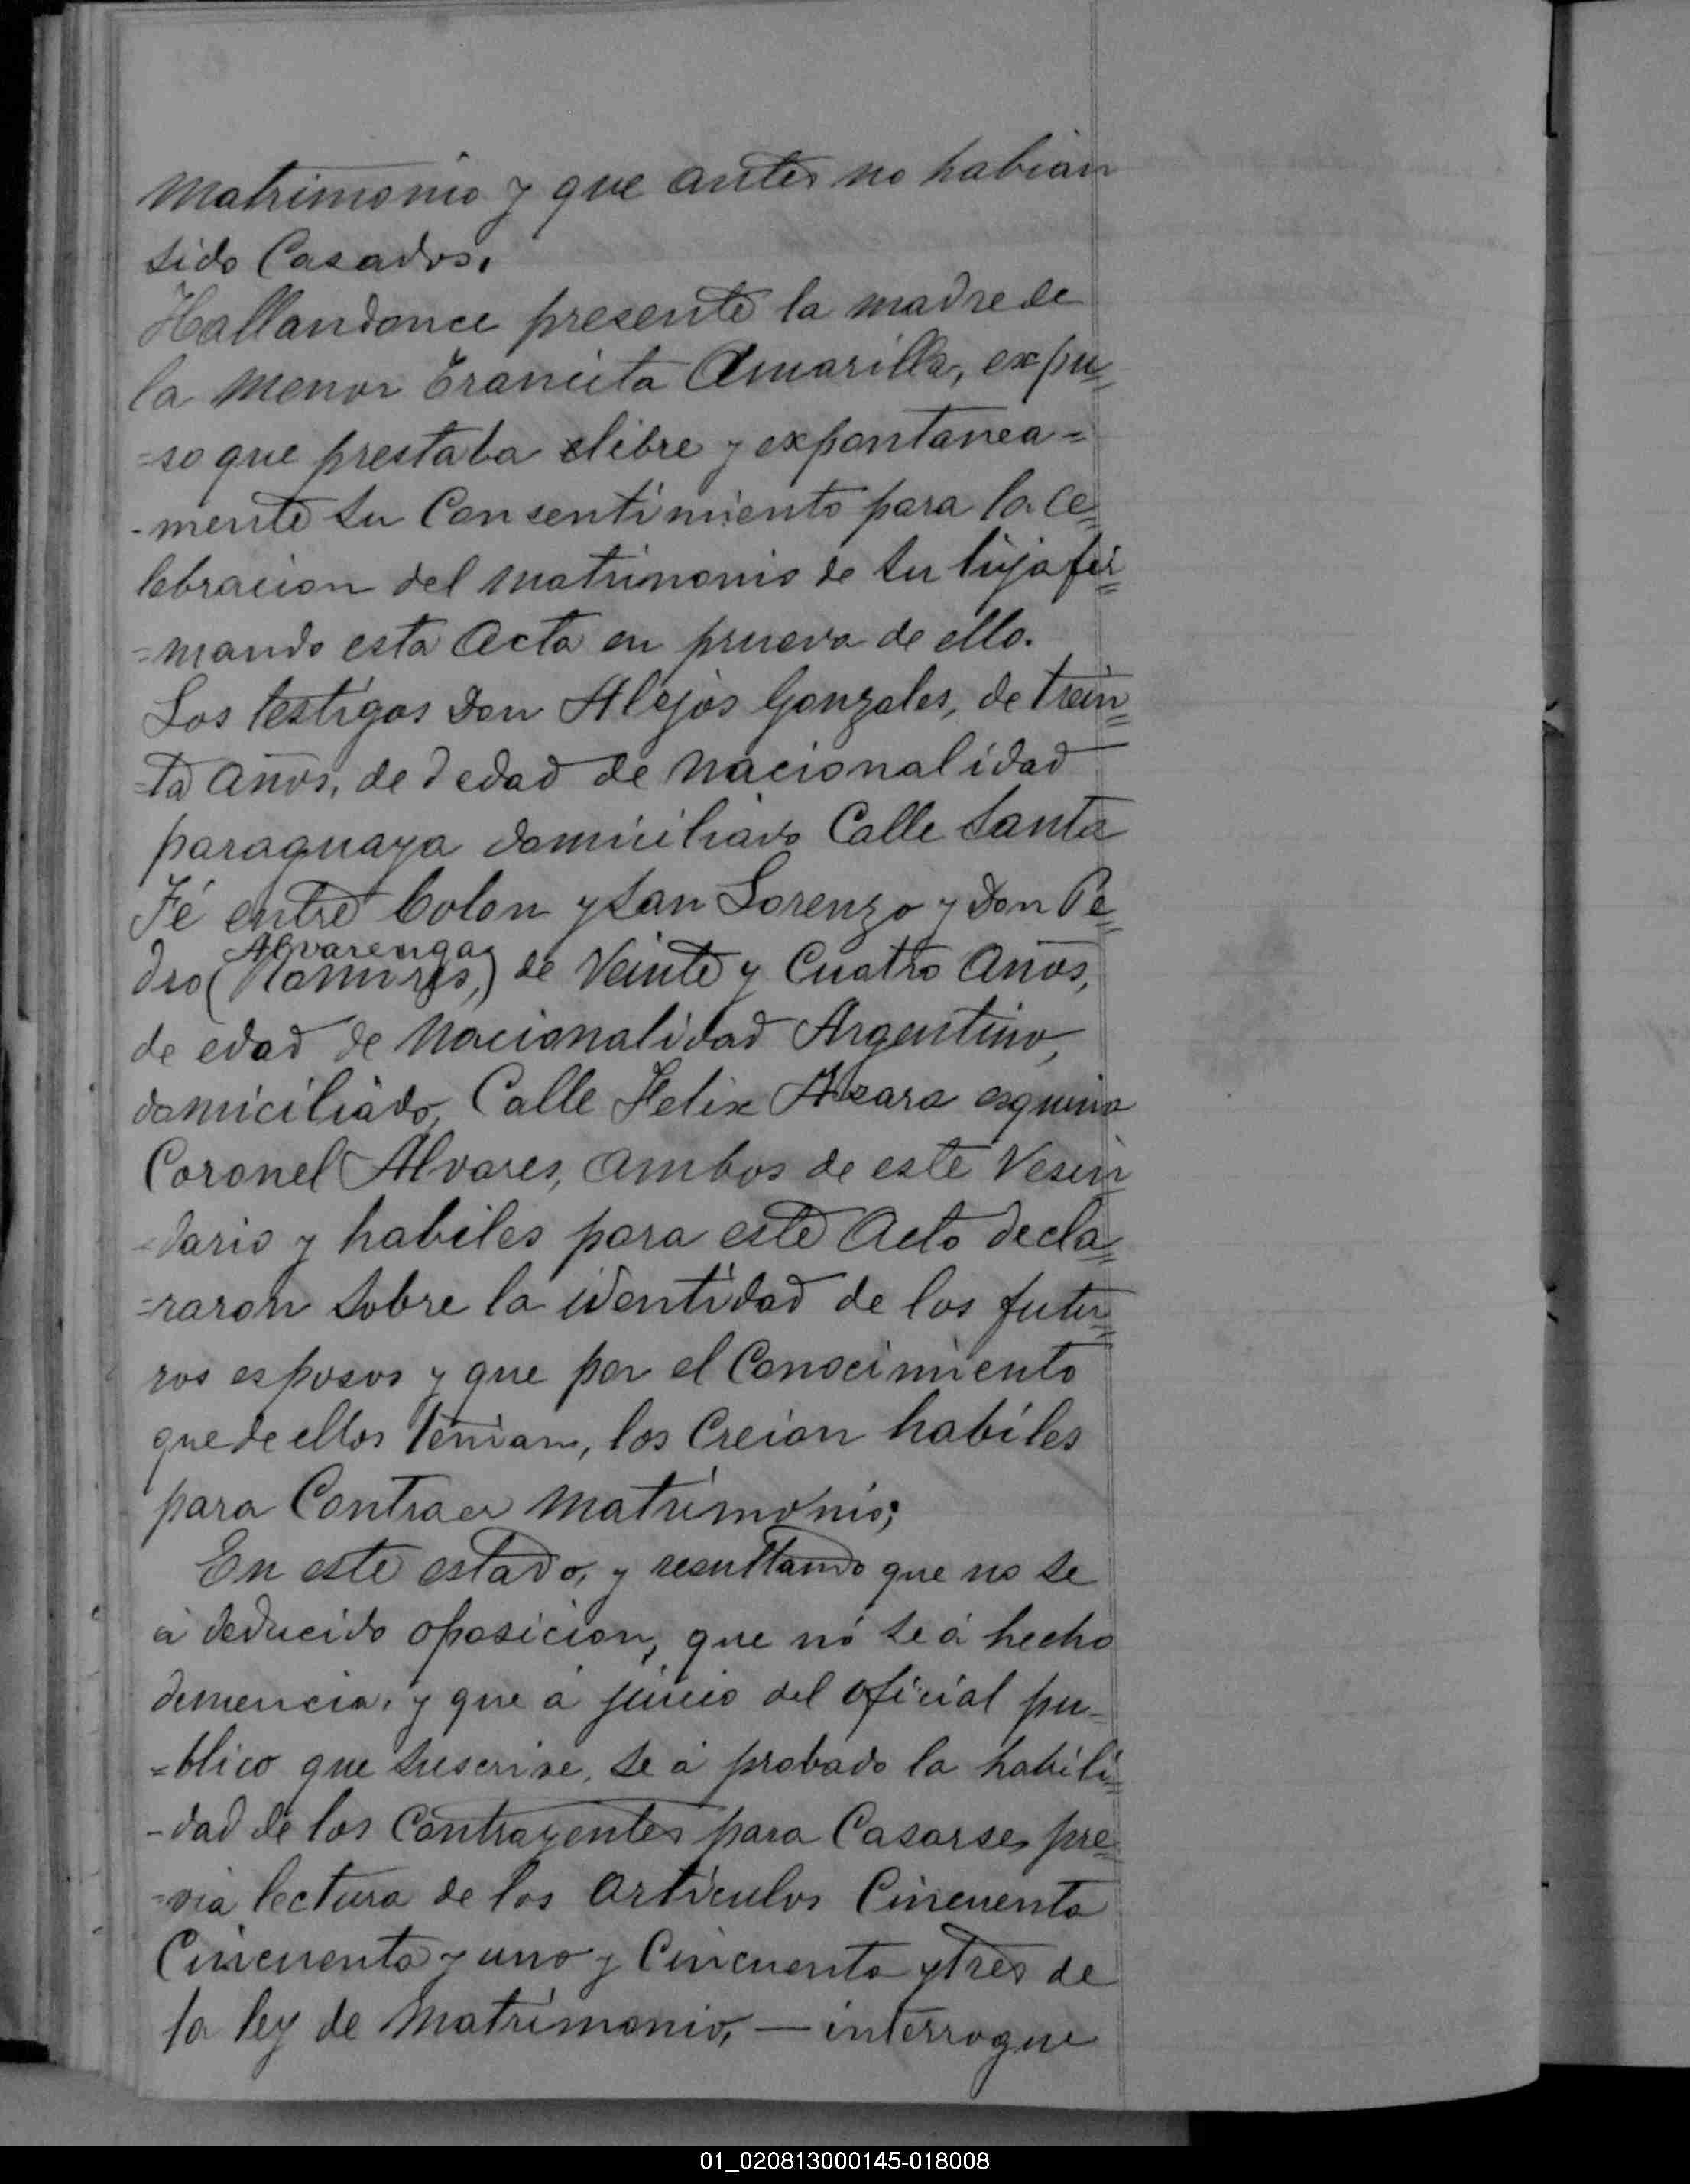 matrimonio y que antes no habian
sido Casados.
Hallandonce presente la madre de
la menor Francita Amarilla, expu=
=so que prestaba libre y expontanea=
-mente su Consentimiento para la Ce=
lebracion del matrimonio de su hija fir=
=mando esta Acta en prueva de ello.
Los testigos Don Alejos Gonzales, de trein=
=ta años, de edad de nacionalidad
paraguaya domiciliado Calle Santa
Fé entre Colon y San Lorenzo y Don Pe=
Alvarenga
dro (Ramires,) de Veinte y Cuatro años,
de edad de nacionalidad Argentino,
domiciliado, Calle Felix Azara esquina
Coronel Alvares, ambos de este Vesin
=dario y habiles para este Acto decla=
=raron sobre la identidad de los futu=
ros esposos y que por el Conocimiento
que de ellos tenian, los Creian habiles
para Contraer matrimonio;
En este estado, y resultando que no se
á deducido oposicion, que nó se á hecho
denuncia, y que á juicio del oficial pu-
=blico que suscrive, se á probado la habili=
-dad de los Contrayentes para Casarse, pre=
=via lectura de los Articulos Cincuenta
Cincuenta y uno y Cincuenta y tres de
la ley de Matrimonio, — interrogue
01_020813000145-018008